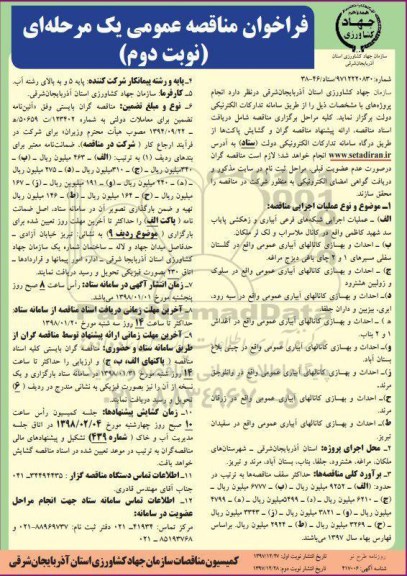 فراخوان مناقصه عمومی یک مرحله‌ای
(نوبت دوم)
جهاد کشاورزی
سازمان جهاد کشاورزی استان
آذربایجان‌شرقی
شماره: ۹۷۱۲۲۲۰۸۳۰/ستاد/۳۸-۴۶
سازمان جهاد کشاورزی استان آذربایجان‌شرقی درنظر دارد انجام
پروژه‌های با مشخصات ذیل را از طریق سامانه تدارکات الکترونیکی
دولت برگزار نماید. کلیه مراحل برگزاری مناقصه شامل دریافت
اسناد مناقصه، ارائه پیشنهاد مناقصه گران و گشایش پاکت‌ها از
طریق درگاه سامانه تدارکات الکترونیکی دولت (ستاد) به آدرس
www.setadiran.ir انجام خواهد شد؛ لازم است مناقصه گران
درصورت عدم عضویت قبلی، مراحل ثبت نام در سایت مذکور و
دریافت گواهی امضای الکترونیکی به منظور شرکت در مناقصه را
محقق سازند.
۱ـ موضوع و نوع عملیات اجرایی مناقصه:
الف) ـ عملیات اجرایی شبکه‌های فرعی آبیاری و زهکشی پایاب
سد شهید کاظمی واقع در کانال ملاسراب و لک لر ملکان.
ب) ـ احداث و بهسازی کانالهای آبیاری عمومی واقع در گلستان
سفلی مسیرهای ۱ و ۲ چای باغی دیزج مراغه.
ج) ـ احداث و بهسازی کانالهای آبیاری عمومی واقع در سیلوک
و زولبین هشترود
د) ـ احداث و بهسازی کانالهای آبیاری عمومی واقع در سیه رود،
ایری، بیزین و داران جلفا.
ه) ـ احداث و بهسازی کانالهای آبیاری عمومی واقع در آقداش
۱ و ۲ بناب.
و) ـ احداث و بهسازی کانالهای آبیاری عمومی واقع در چینی بلاغ
بستان آباد.
مرند.
مرند.
ح) ـ احداث و بهسازی کانالهای آبیاری عمومی واقع در زرقان
ط) ـ احداث و بهسازی کانالهای آبیاری عمومی واقع در سفیدان
تبریز.
۲ـ محل اجرای پروژه: استان آذربایجان شرقی ـ شهرستان‌های
ملکان، مراغه، هشترود، جلفا، بناب، بستان آباد، مرند و تبریز.
۳ـ برآورد کلی مناقصه‌ها: حداکثر سقف مناقصه‌ها به ترتیب در
حدود: (الف) ـ ۹۲۵۲ میلیون ریال ـ (ب) ـ ۶۷۷۷ میلیون ریال ـ
(ج) ـ ۶۲۱۰ میلیون ریال ـ (د) ـ ۵۴۹۹میلیون ریال ـ (ه) ـ ۴۷۹۹
میلیون ریال ـ (و) ـ ۳۸۲۱ میلیون ریال ـ (ز) ـ ۳۳۴۳ میلیون
ریال ـ (ح) ـ ۳۲۶۹ میلیون ریال ـ (ط) ـ ۲۹۲۴ میلیون ریال. براساس
فهارس بهاء سال ۱۳۹۷ می‌باشد.
۴ـ پایه و رشته پیمانکار شرکت کننده: پایه ۵ و به بالای رشته آب.
۵ـ کارفرما: سازمان جهاد کشاورزی استان آذربایجان‌شرقی.
۶ـ نوع و مبلغ تضمین: مناقصه گران بایستی وفق «آئین‌نامه
تضمین برای معاملات دولتی به شماره ۱۲۳۴۰۲/ت۵۰۶۵۹ه
۱۳۹۴/۰۹/۲۲ مصوب هیأت محترم وزیران» برای شرکت در
فرآیند ارجاع کار ( شرکت در مناقصه)، ضمانت‌نامه معتبر برای
بندهای ردیف (۱) به ترتیب: (الف) ـ ۴۶۳ میلیون ریال ـ (ب) ـ
۳۴۰میلیون ریال ـ (ج) ـ ۳۱۰میلیون ریال ـ (د) ـ ۲۷۵ میلیون ریال
ـ (ه) ـ ۲۴۰ میلیون ریال ـ (و) ـ ۱۹۱ میلیون ریال ـ (ز) ـ ۱۶۷
میلیون ریال ـ (ح) ـ ۱۶۴ میلیون ریال ـ (ط) ـ ۱۴۶ میلیون ریال
تهیه و ضمن بارگذاری تصویر آن در سامانه ستاد، اصل ضمانت
نامه ( پاکت الف ) را حداکثر تا آخرین مهلت روز تعیین شده برای
بارگزاری ( موضوع ردیف ۹ ) به نشانی: تبریز خیابان آزادی ـ
حدفاصل میدان جهاد و لاله ـ ساختمان شماره یک سازمان جهاد
کشاورزی استان آذربایجان شرقی ـ اداره امور پیمانها و قراردادها ـ
اتاق ۲۳۰ بصورت فیزیکی تحویل و رسید دریافت نمایند.
۷ـ زمان انتشار آگهی در سامانه ستاد: رأس ساعت ۸ صبح روز
پنجشنبه مورخ ۱۳۹۸/۰۱/۰۱ می‌باشد.
۸ـ آخرین مهلت زمانی دریافت اسناد مناقصه از سامانه ستاد:
حداکثر تا ساعت ۱۴ روز سه شنبه مورخ ۱۳۹۸/۰۱/۲۰
۹ـ آخرین مهلت زمانی ارائه پیشنهاد توسط مناقصه گران از
طریق سامانه ستاد و حضوری: مناقصه گران بایستی کلیه اسناد
مناقصه ( پاکتهای الف، ب، ج ) و ارزیابی را حداکثر تا ساعت
۱۴ روز شنبه مورخ ۱۳۹۸/۰۱/۳۱ در سامانه ستاد بارگزاری و یک
نسخه از آن را نیز بصورت فیزیکی به نشانی مندرج در ردیف ( ۶)
تحویل و رسید دریافت نمایند.
۱۰ـ زمان گشایش پیشنهادها: جلسه کمیسیون رأس ساعت
۱۰ صبح روز چهارشنبه مورخ ۱۳۹۸/۰۲/۰۴ در اتاق جلسه
مدیریت آب و خاک ( شماره ۴۳۹) تشکیل و پیشنهادهای مالی
مناقصه‌گران به ترتیب در موعد تعیین شده در اسناد مناقصه گشایش
خواهد یافت.
جناب آقای مهندس قادری.
۱۲ـ اطلاعات تماس سامانه ستاد جهت انجام مراحل
عضویت در سامانه:
مرکز تماس: ۴۱۹۳۴-۰۲۱ دفتر ثبت نام: ۸۸۹۶۹۷۳۷-۰۲۱
و ۸۵۱۹۳۷۶۸
کمیسیون مناقصات سازمان جهاد کشاورزی استان آذربایجان‌شرقی